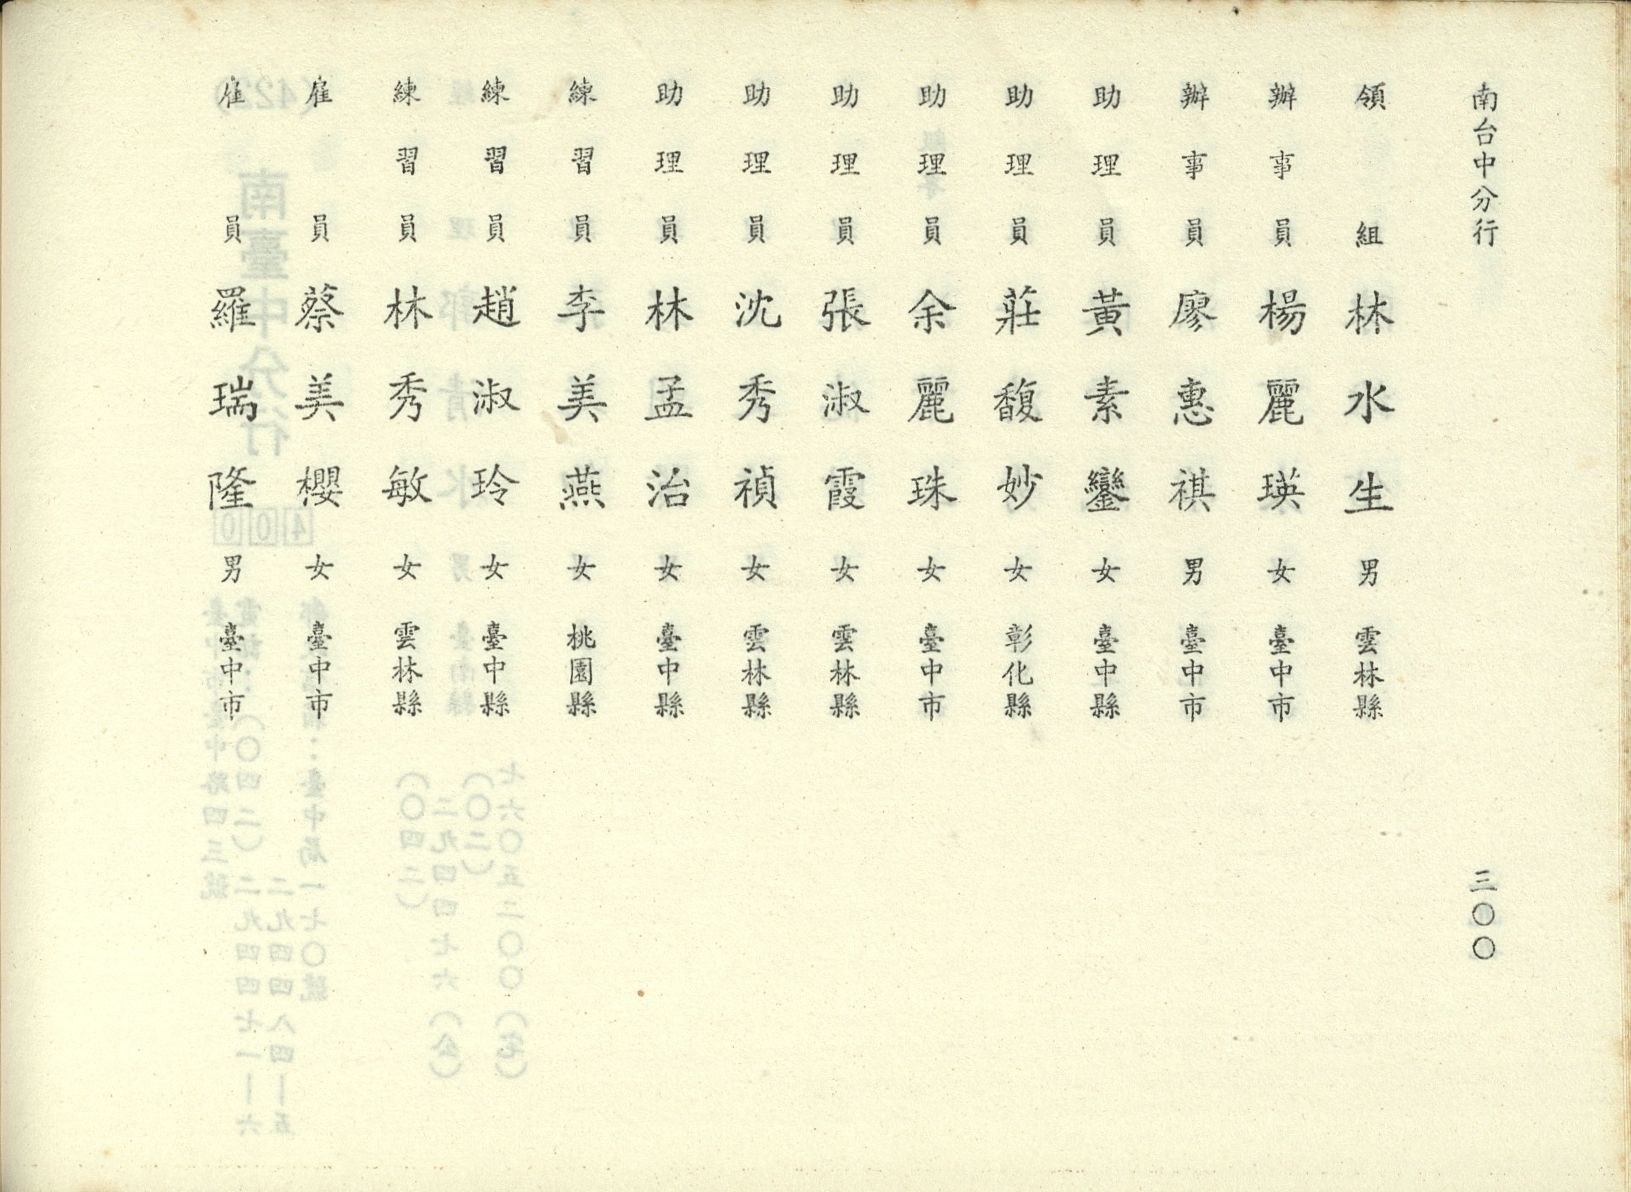 南台中分行
三〇〇
領組 林水生 男 雲林縣
辦事員 楊麗瑛 女 臺中市
辦事員 廖惠祺 男 臺中市
助理員 黃素鑾 女 臺中縣
助理員 莊馥妙 女 彰化縣
助理員 余麗珠 女 臺中市
助理員 張淑霞 女 雲林縣
助理員 沈秀禎 女 雲林縣
助理員 林孟治 女 臺中縣
練習員 李美燕 女 桃園縣
練習員 趙淑玲 女 臺中縣
練習員 林秀敏 女 雲林縣
雇員 蔡美櫻 女 臺中市
雇員 羅瑞隆 男 臺中市